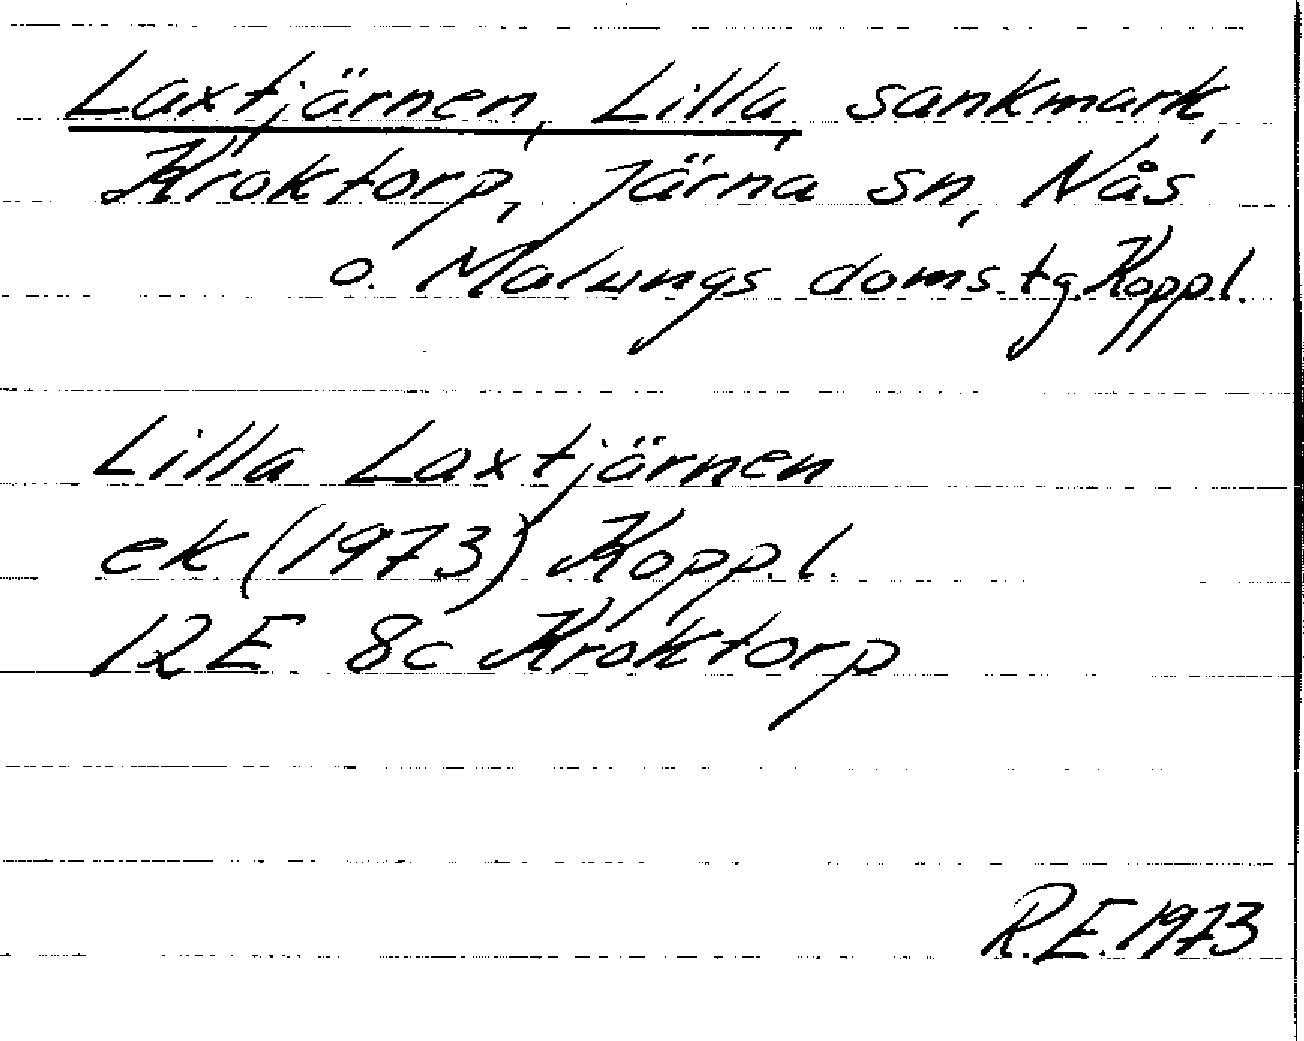 Laxtjärnen, Lilla, sankmark,
Kroktorp, Järna sn, Nås
o. Malungs doms.tg. Kopp.l.
Lilla Laxtjärnen
ek (1973) Kopp.l.
12E 8c Kroktorp
R.E. 1973